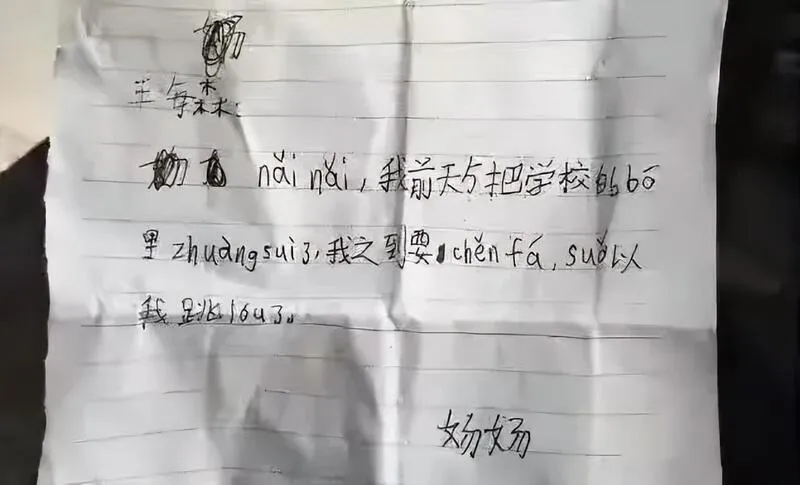 王每森:
nǎi nǎi,我前天把学校的bō
里zhuàngsuì了,我之到要chěnfá,suǒ以
我跳lóu了。
妫妫